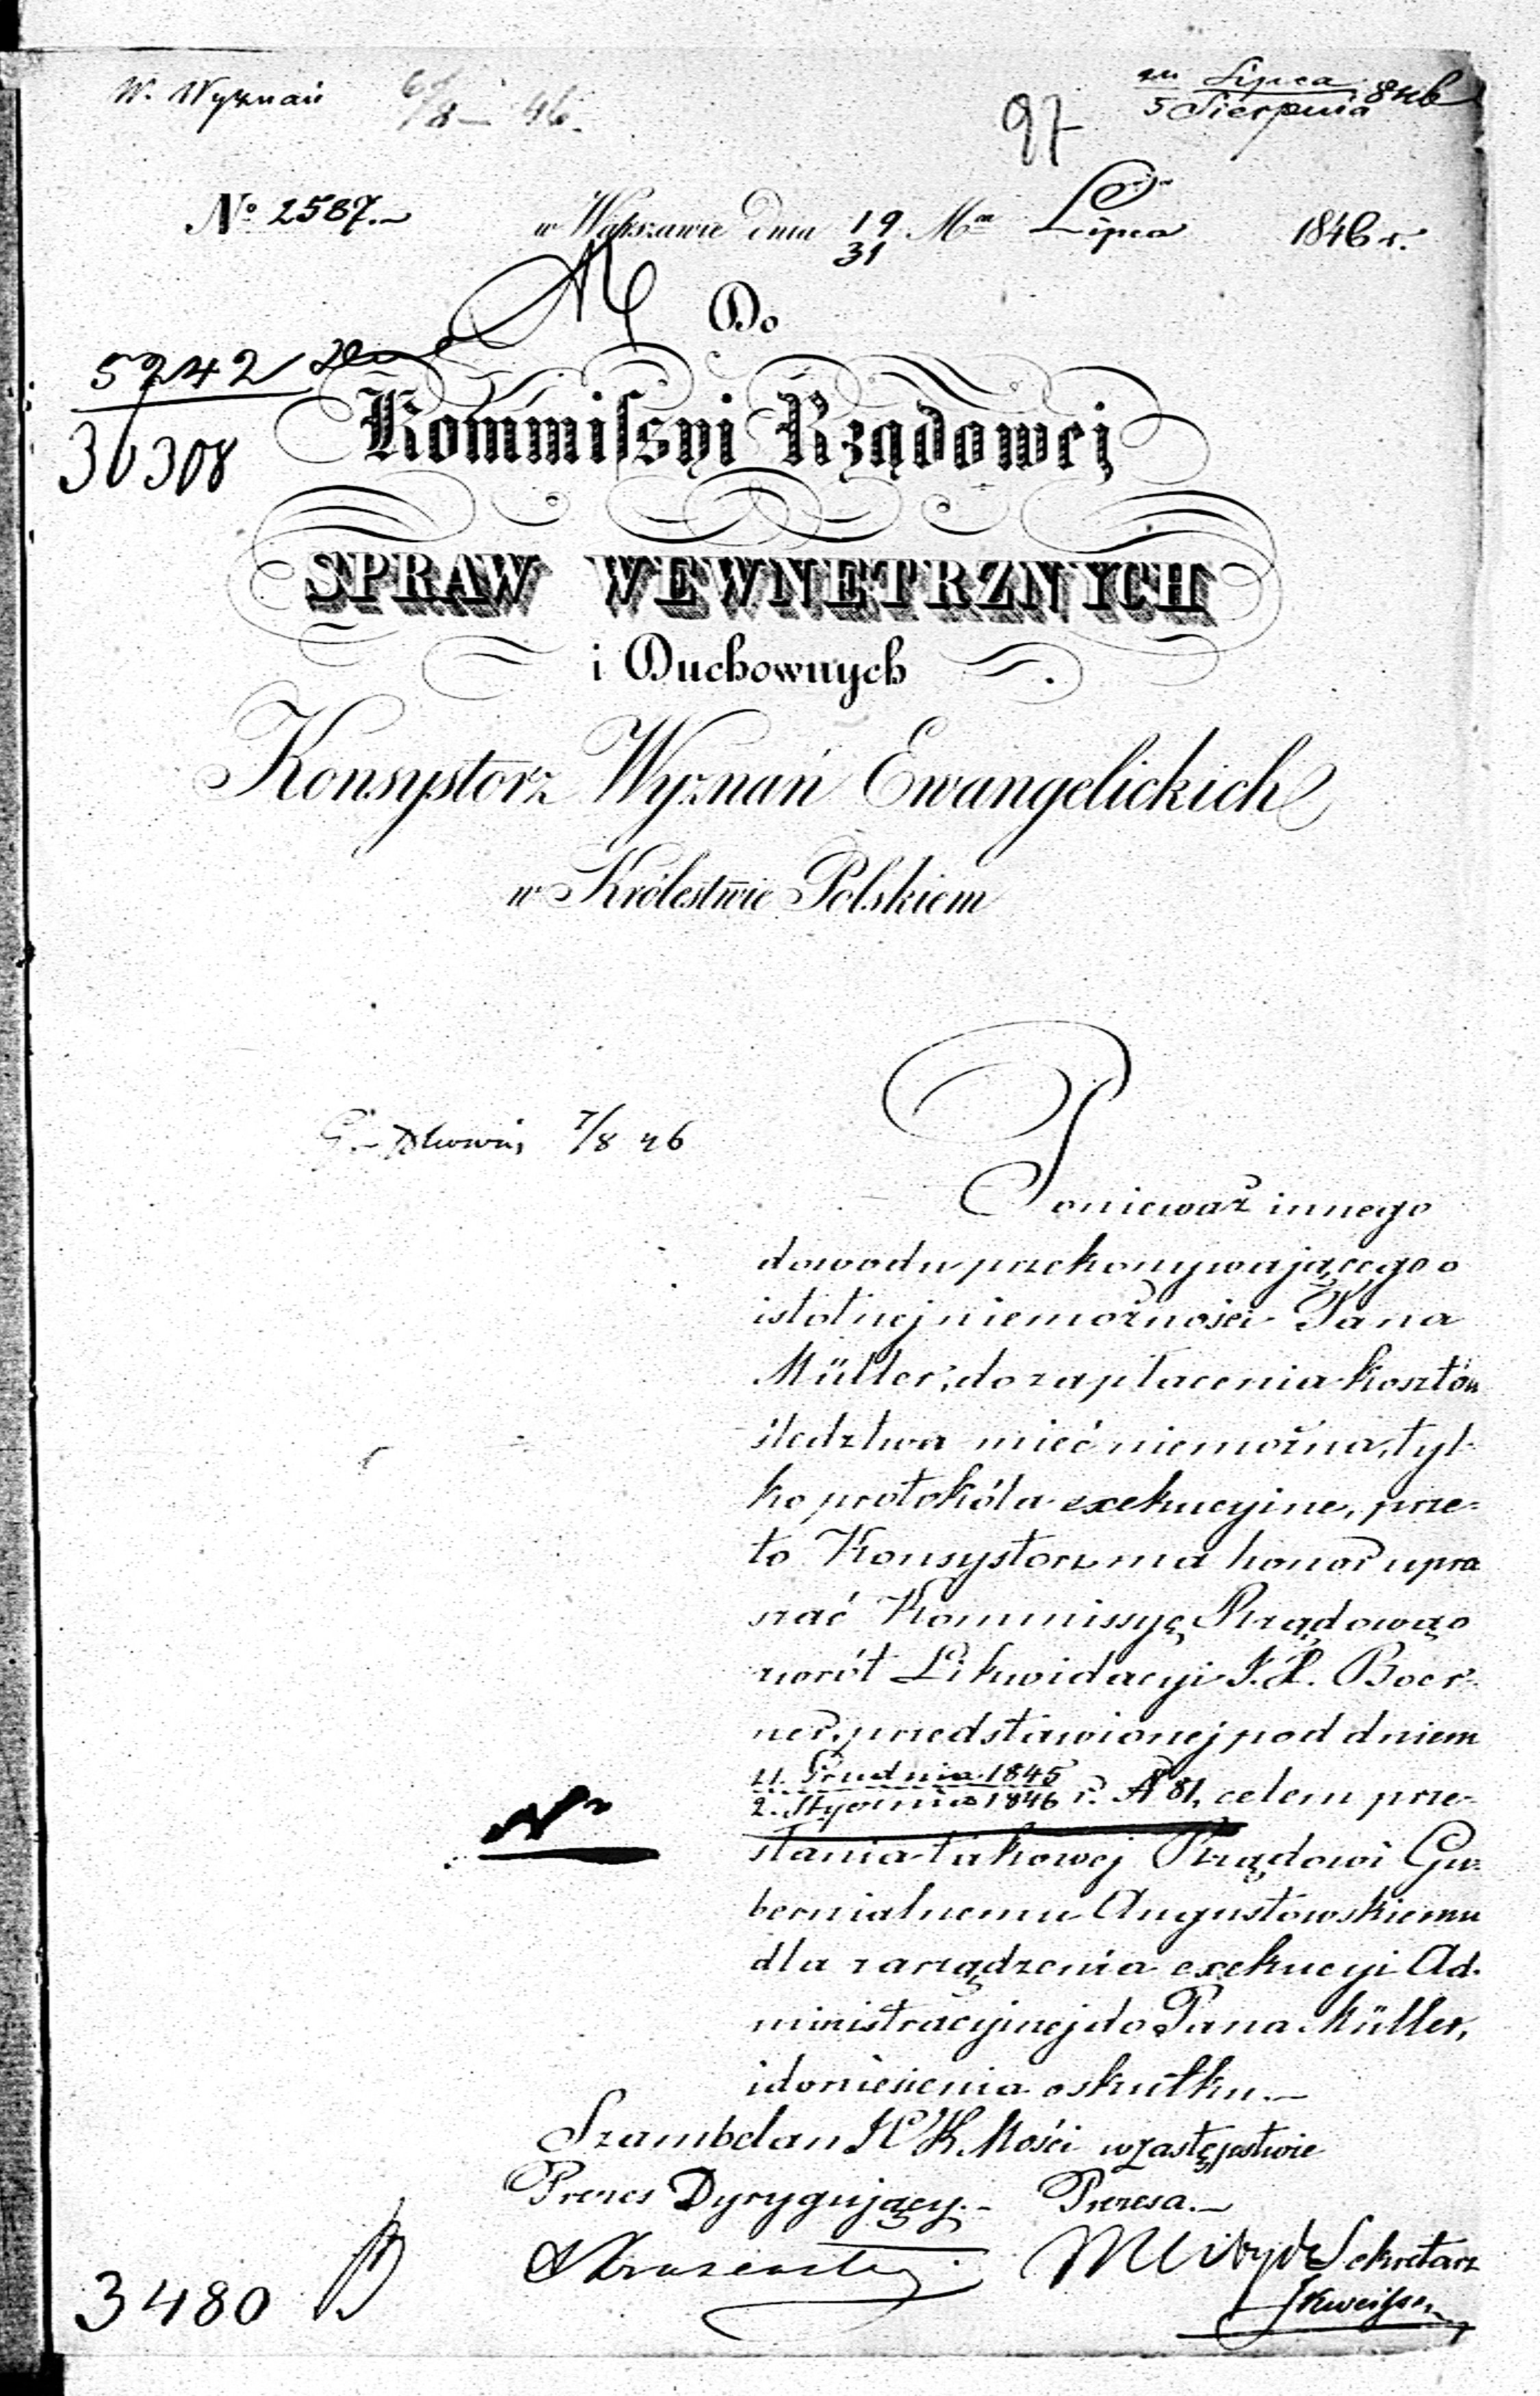 W. Wyznań 6/8 – 46.
97
Lipca
5 Sierpnia 846
No 2587.–
w Warszawie dnia 19/31 Mca Lipca 1846 r.
Do
5242
30308
Kommissyi Rządowej
SPRAW WEWNĘTRZNYCH
i Duchownych
Konsystorz Wyznań Ewangelickich
w Królestwie Polskiem
7/8 46
Ponieważ innego
dowodu przekonywającego o
istotnej niemożności Pana
Müller, do zapłacenia kosztów
śledztwa mieć niemożna, tyl-
ko protokóła exekucyine, prze-
to Konsystorz ma honor upra
szać Kommissyę Rządową o
zwrót Likwidacyi J. X. Boer-
ner, przedstawionej pod dniem
21. Grudnia 1845
2. Stycznia 1846 r. N 81, celem prze-
słania takowej Rządowi Gu-
bernialnemu Augustowskiemu
dla zarządzenia exekucyi Ad-
ministracyjnej do Pana Müller,
i doniesienia o skutku.–
Szambelan J C K Mości w zastępstwie
Prezes Dyrygujący.– Prezesa.–
Sekretarz
3480